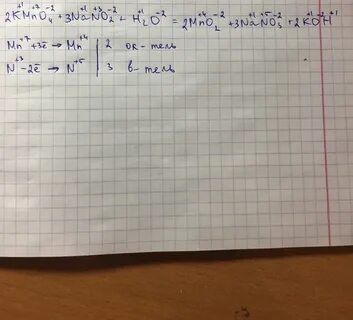 2K⁺¹Mn⁺⁷O₄⁻² + 3Na⁺¹N⁺³O₂⁻² + H₂⁺¹O⁻² = 2Mn⁺⁴O₂⁻² + 3Na⁺¹N⁺⁵O₃⁻² + 2K⁺¹O⁻²H⁺¹
Mn⁺⁷ +3ē → Mn⁺⁴ | 2 ок-тель
N⁺³ -2ē → N⁺⁵ | 3 в-тель